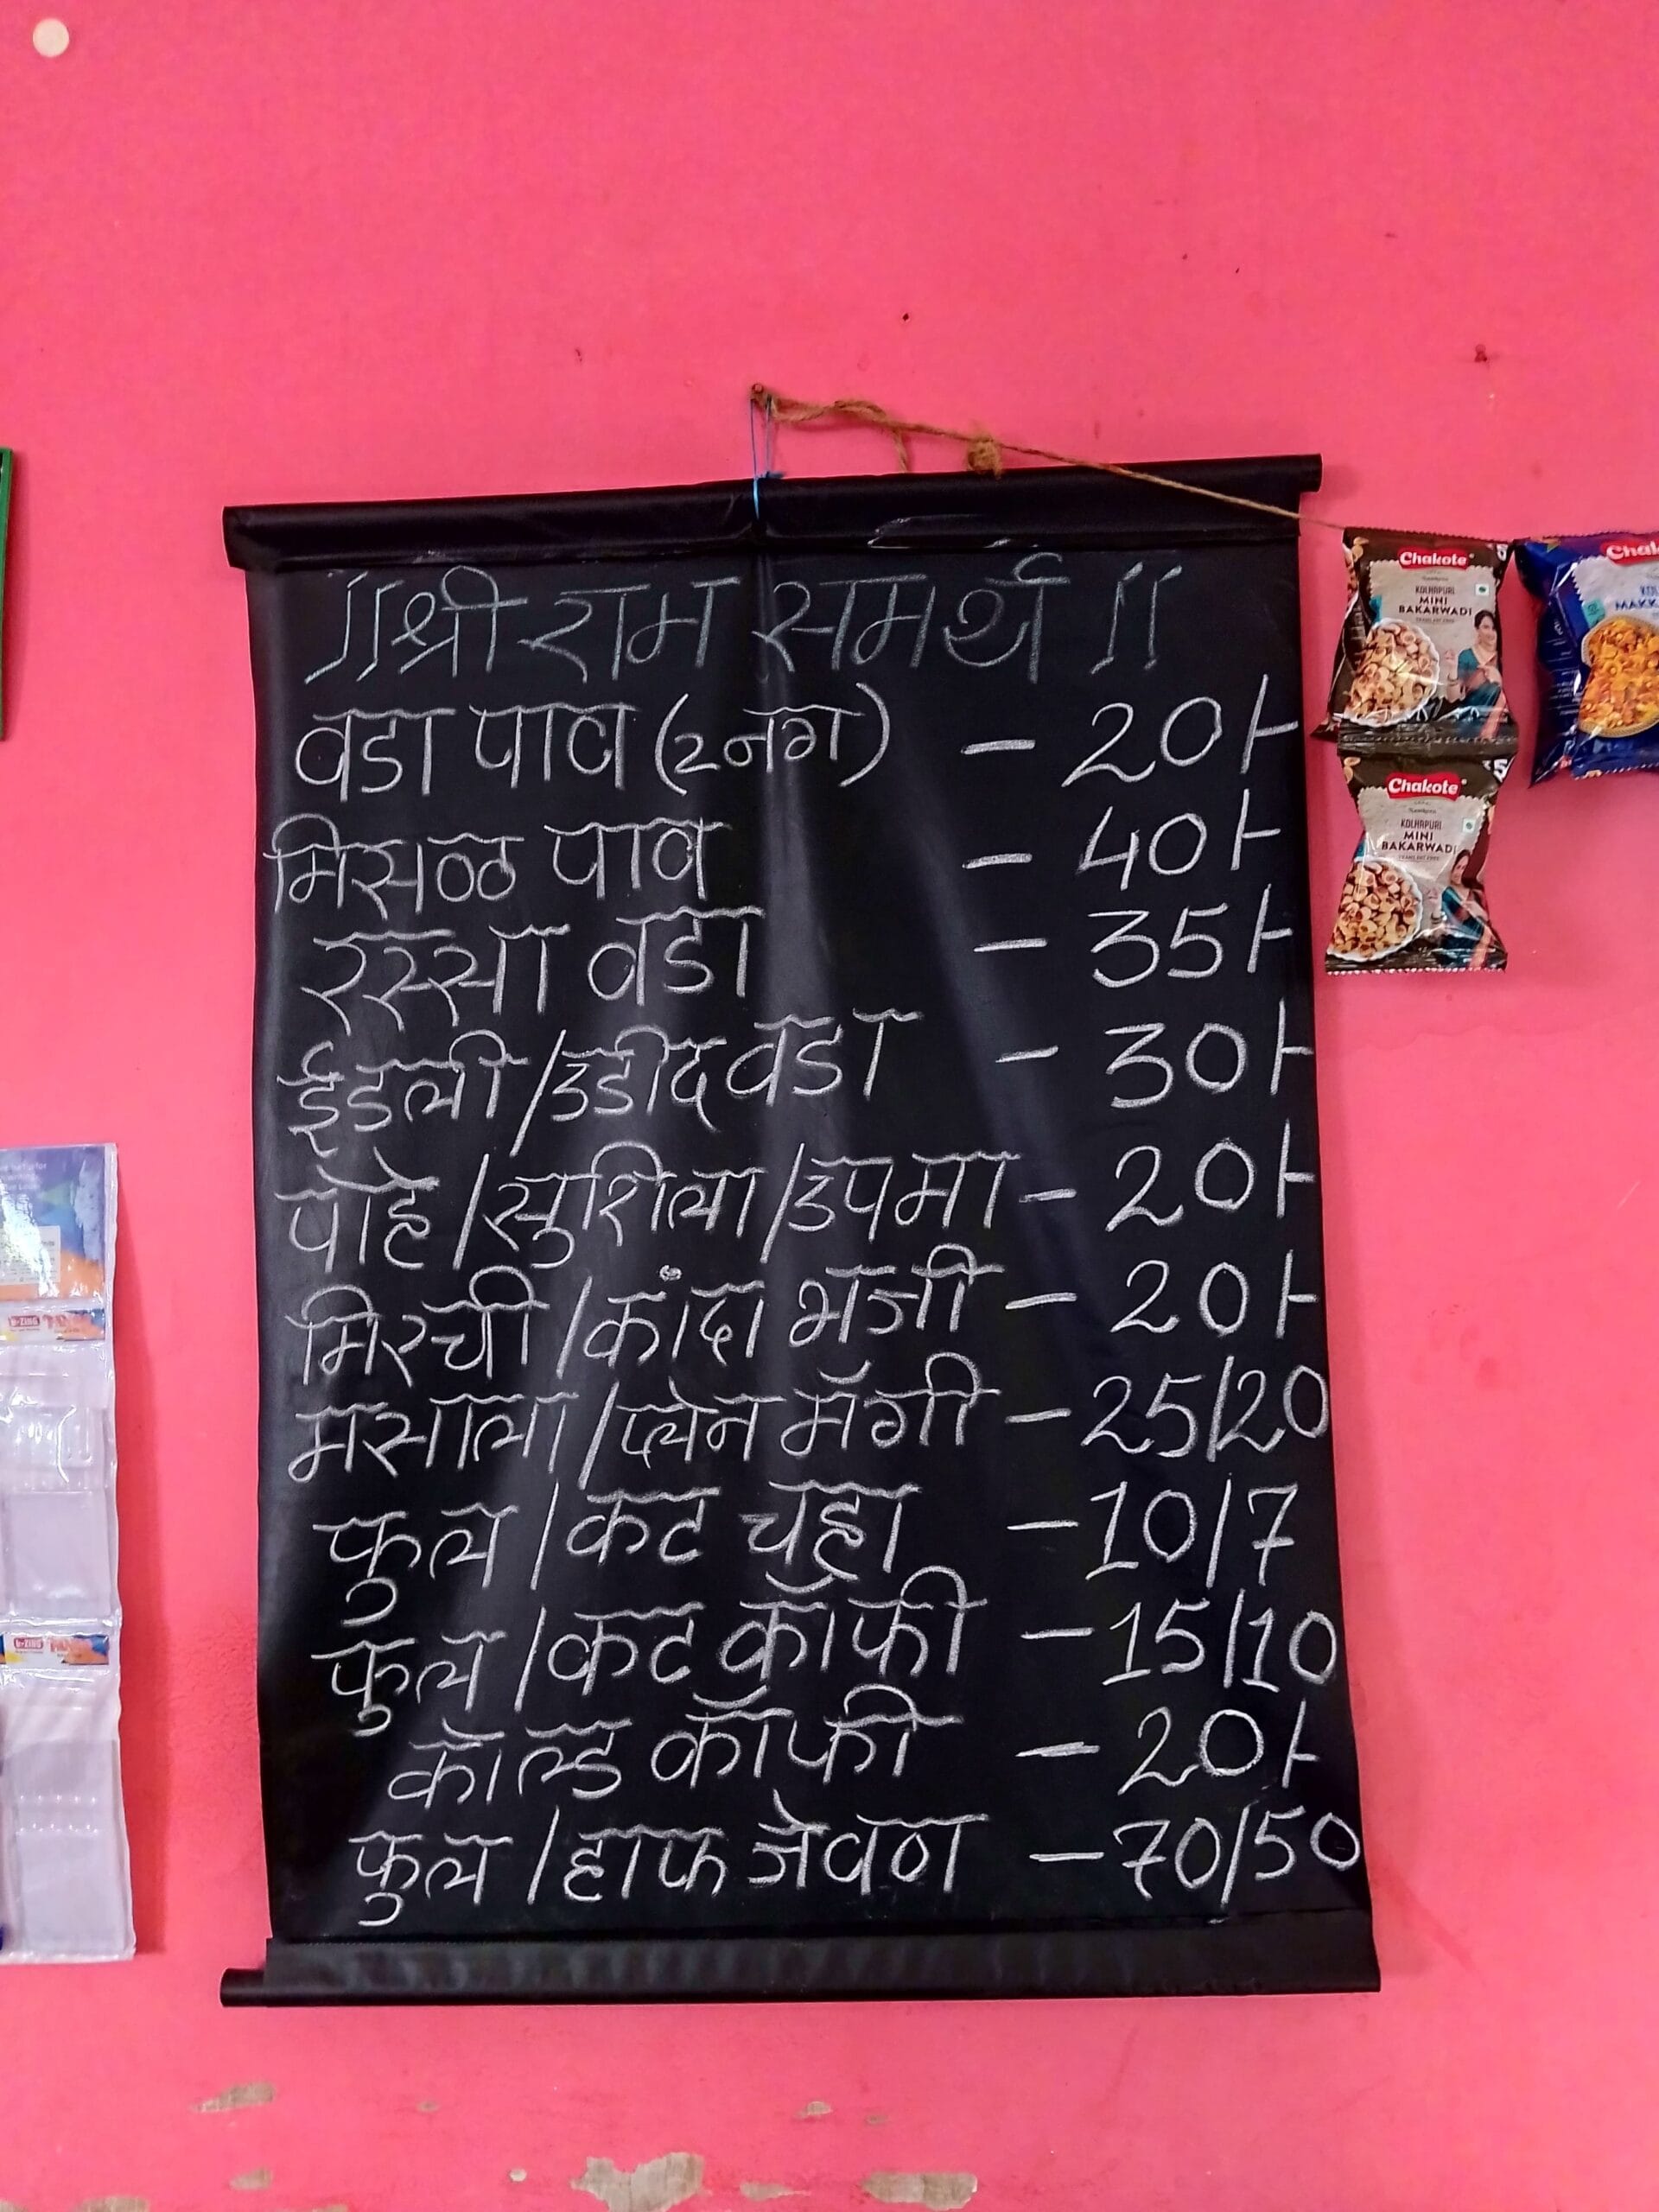 ॥श्री राम समर्थ॥
वडा पाव (2नग) - 20/-
मिसळ पाव - 40/-
रस्सा वडा - 35/-
ईडली/उडीद वडा - 30/-
पोहे/सुशिला/उपमा - 20/-
मिरची/कांदा भजी - 20/-
मसाला/प्लेन मॅगी - 25/20
फुल/कट चहा - 10/7
फुल/कट कॉफी - 15/10
कोल्ड कॉफी - 20/-
फुल/हाफ जेवण - 70/50
Chakote
KOLHAPURI
MINI
BAKARWADI
Chakote
KOLHAPURI
MINI
BAKARWADI